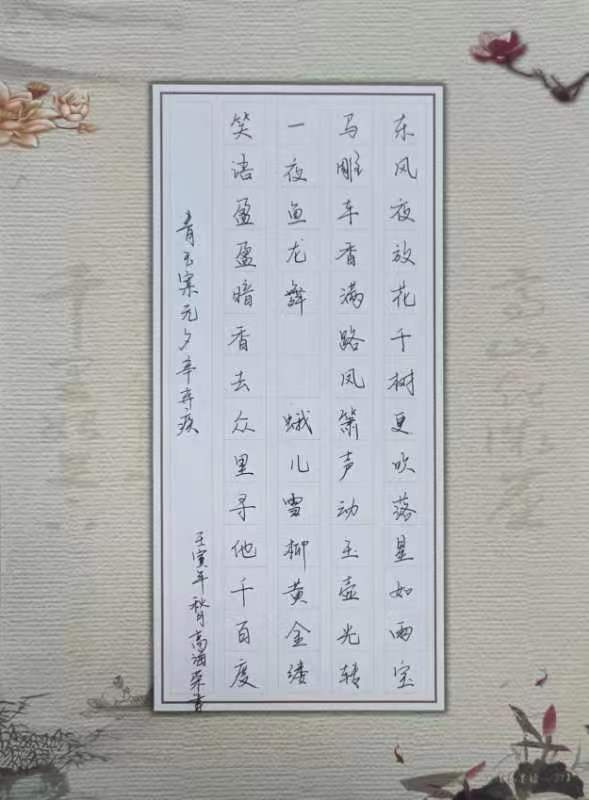 东风夜放花千树更吹落星如雨宝
马雕车香满路凤箫声动玉壶光转
一夜鱼龙舞 蛾儿雪柳黄金缕
笑语盈盈暗香去众里寻他千百度
青玉案元夕辛弃疾
壬寅年秋月高酒荣书